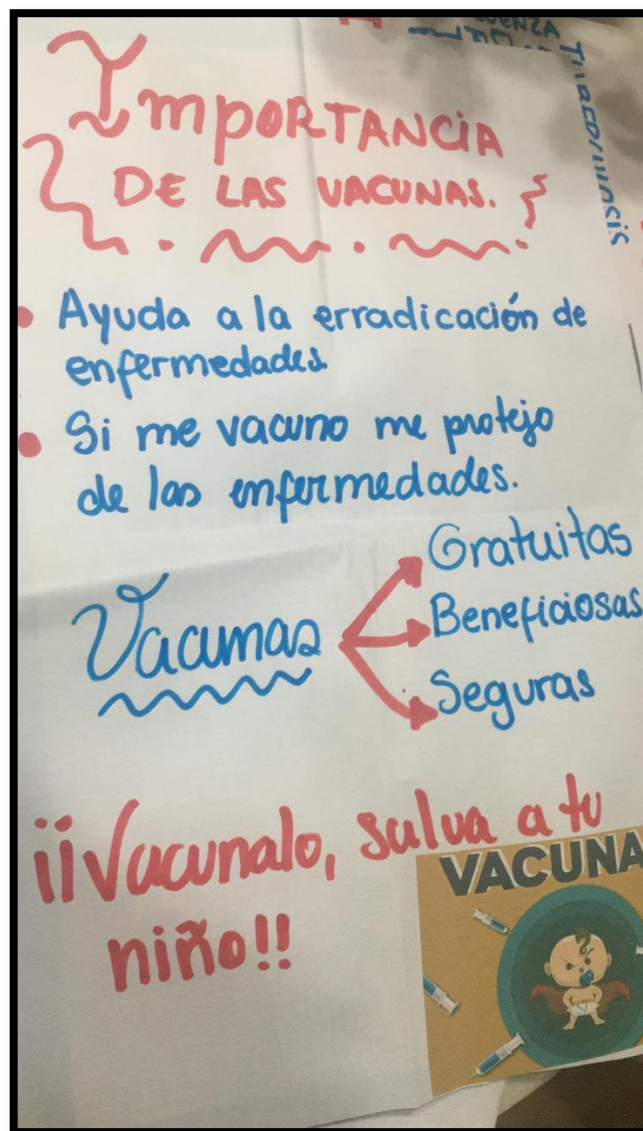 Importancia
DE LAS VACUNAS.
Ayuda a la erradicación de
enfermedades.
Si me vacuno me protejo
de las enfermedades.
Vacunas
Gratuitas
Beneficiosas
Seguras
¡¡Vacunalo, salva a tu
niño!!
VACUNA